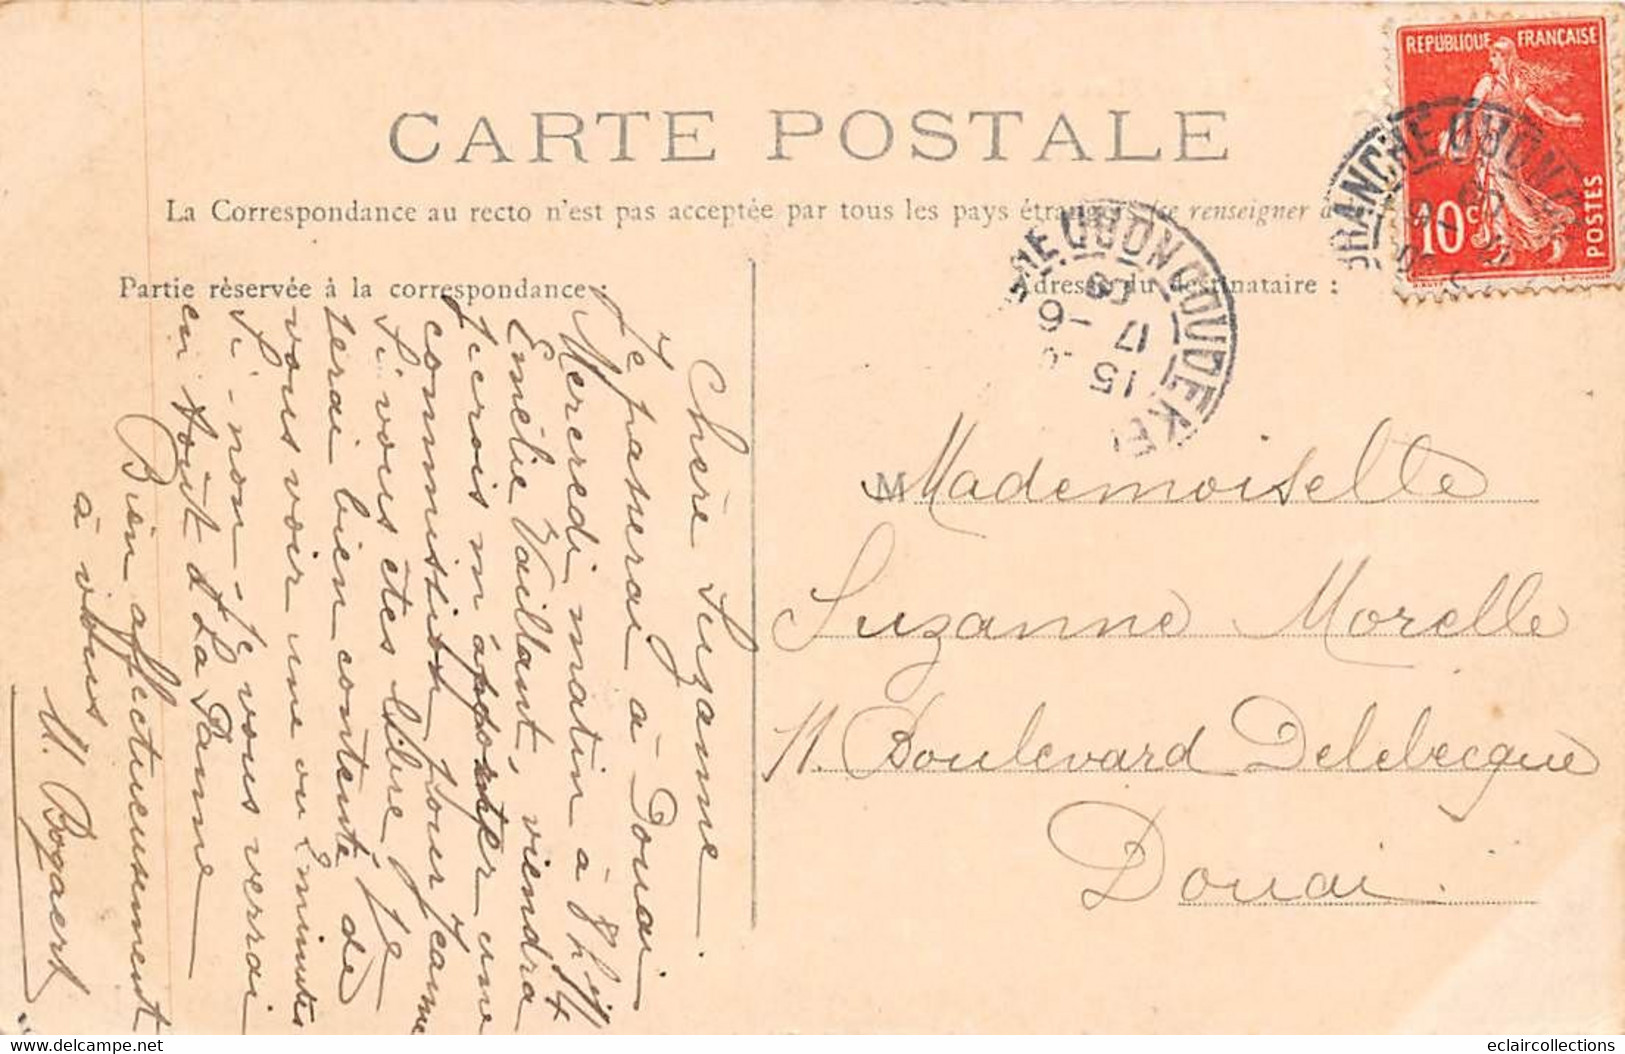 CARTE POSTALE
La Correspondance au recto n'est pas acceptée par tous les pays étrangers (se renseigner
Partie réservée à la correspondance :
Adresse du destinataire :
RÉPUBLIQUE FRANÇAISE
10 c
POSTES
BRANCHE
COUDEKE
15
17 - 6
Chère Suzanne.
Je passerai à Douai
Mercredi matin à 8h
Emélie Vaillant, viendra
je crois m'apporter une
commission pour Jeanne
Si vous êtes libre je
serai bien contente de
vous voir une ou 2 minutes
Si-non je vous verrai
en Août à La Panne
Bien affectueusement
à vous
M. Bogaert
Mademoiselle
Suzanne Morelle
11. Boulevard Delebecque
Douai.
eclaircollections